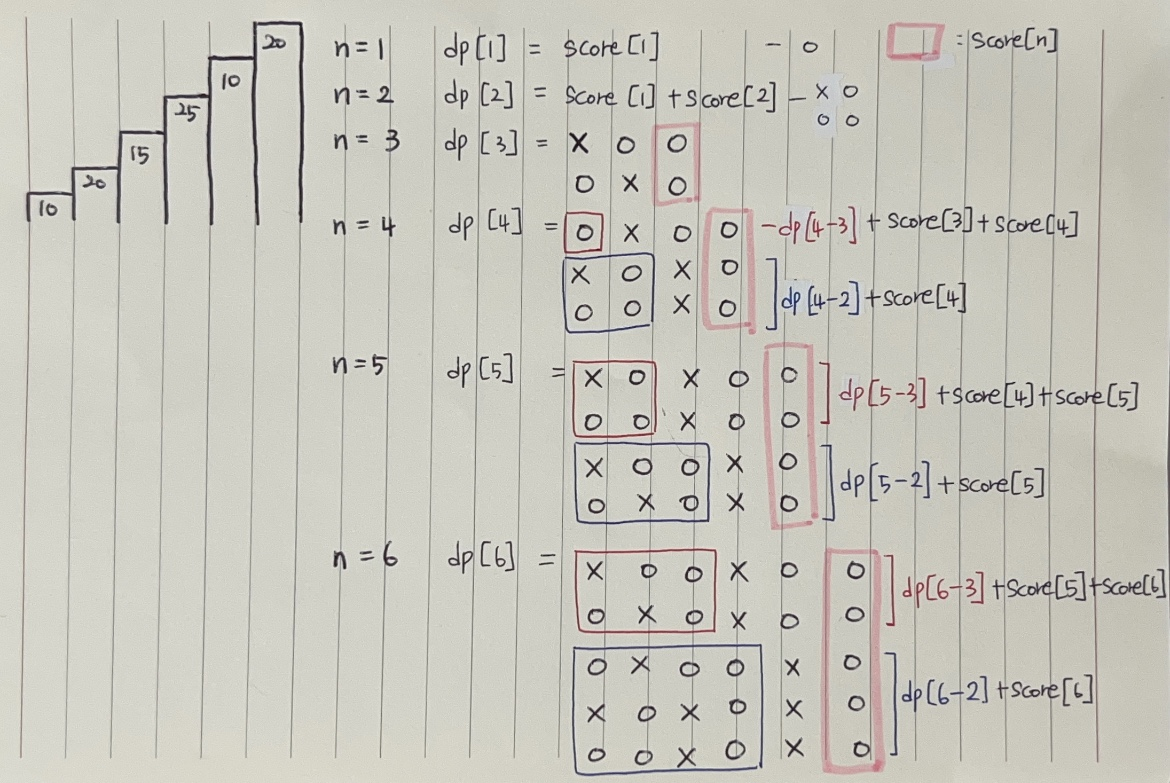 20
10
25
15
20
10
n=1 dp[1] = score[1] - o □ : score[n]
n=2 dp[2] = score[1] + score[2] - x o
o o
n=3 dp[3] = x o o
o x o
n=4 dp[4] = o x o o - dp[4-3] + score[3] + score[4]
x o x o
o o x o ] dp[4-2] + score[4]
n=5 dp[5] = x o x o o
o o x o o ] dp[5-3] + score[4] + score[5]
x o o x o
o x o x o ] dp[5-2] + score[5]
n=6 dp[6] = x o o x o o
o x o x o o ] dp[6-3] + score[5] + score[6]
o x o o x o
x o x o x o ] dp[6-2] + score[6]
o o x o x o